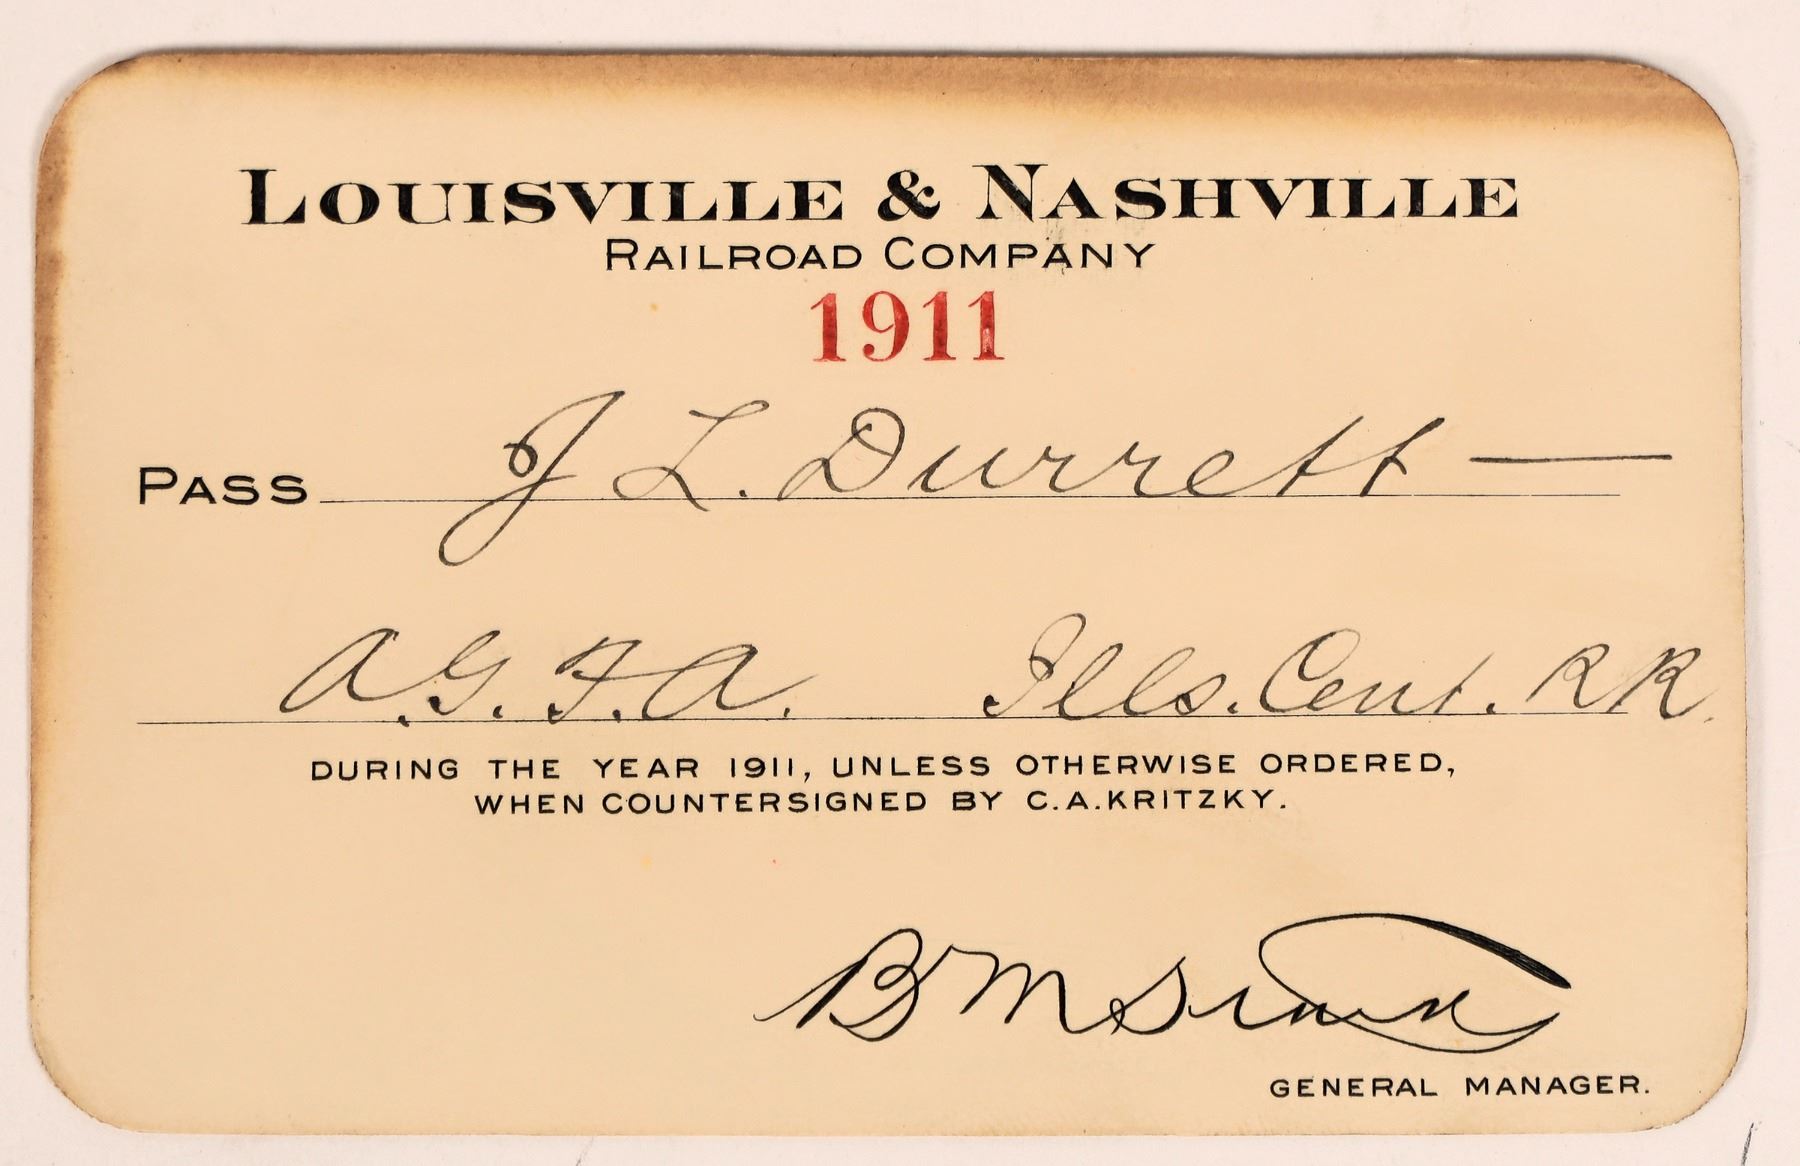 LOUISVILLE & NASHVILLE
RAILROAD COMPANY
1911
PASS J L. Durrett —
A.G.F.A. Ills. Cent. RR.
DURING THE YEAR 1911, UNLESS OTHERWISE ORDERED,
WHEN COUNTERSIGNED BY C.A.KRITZKY.
B M
GENERAL MANAGER.